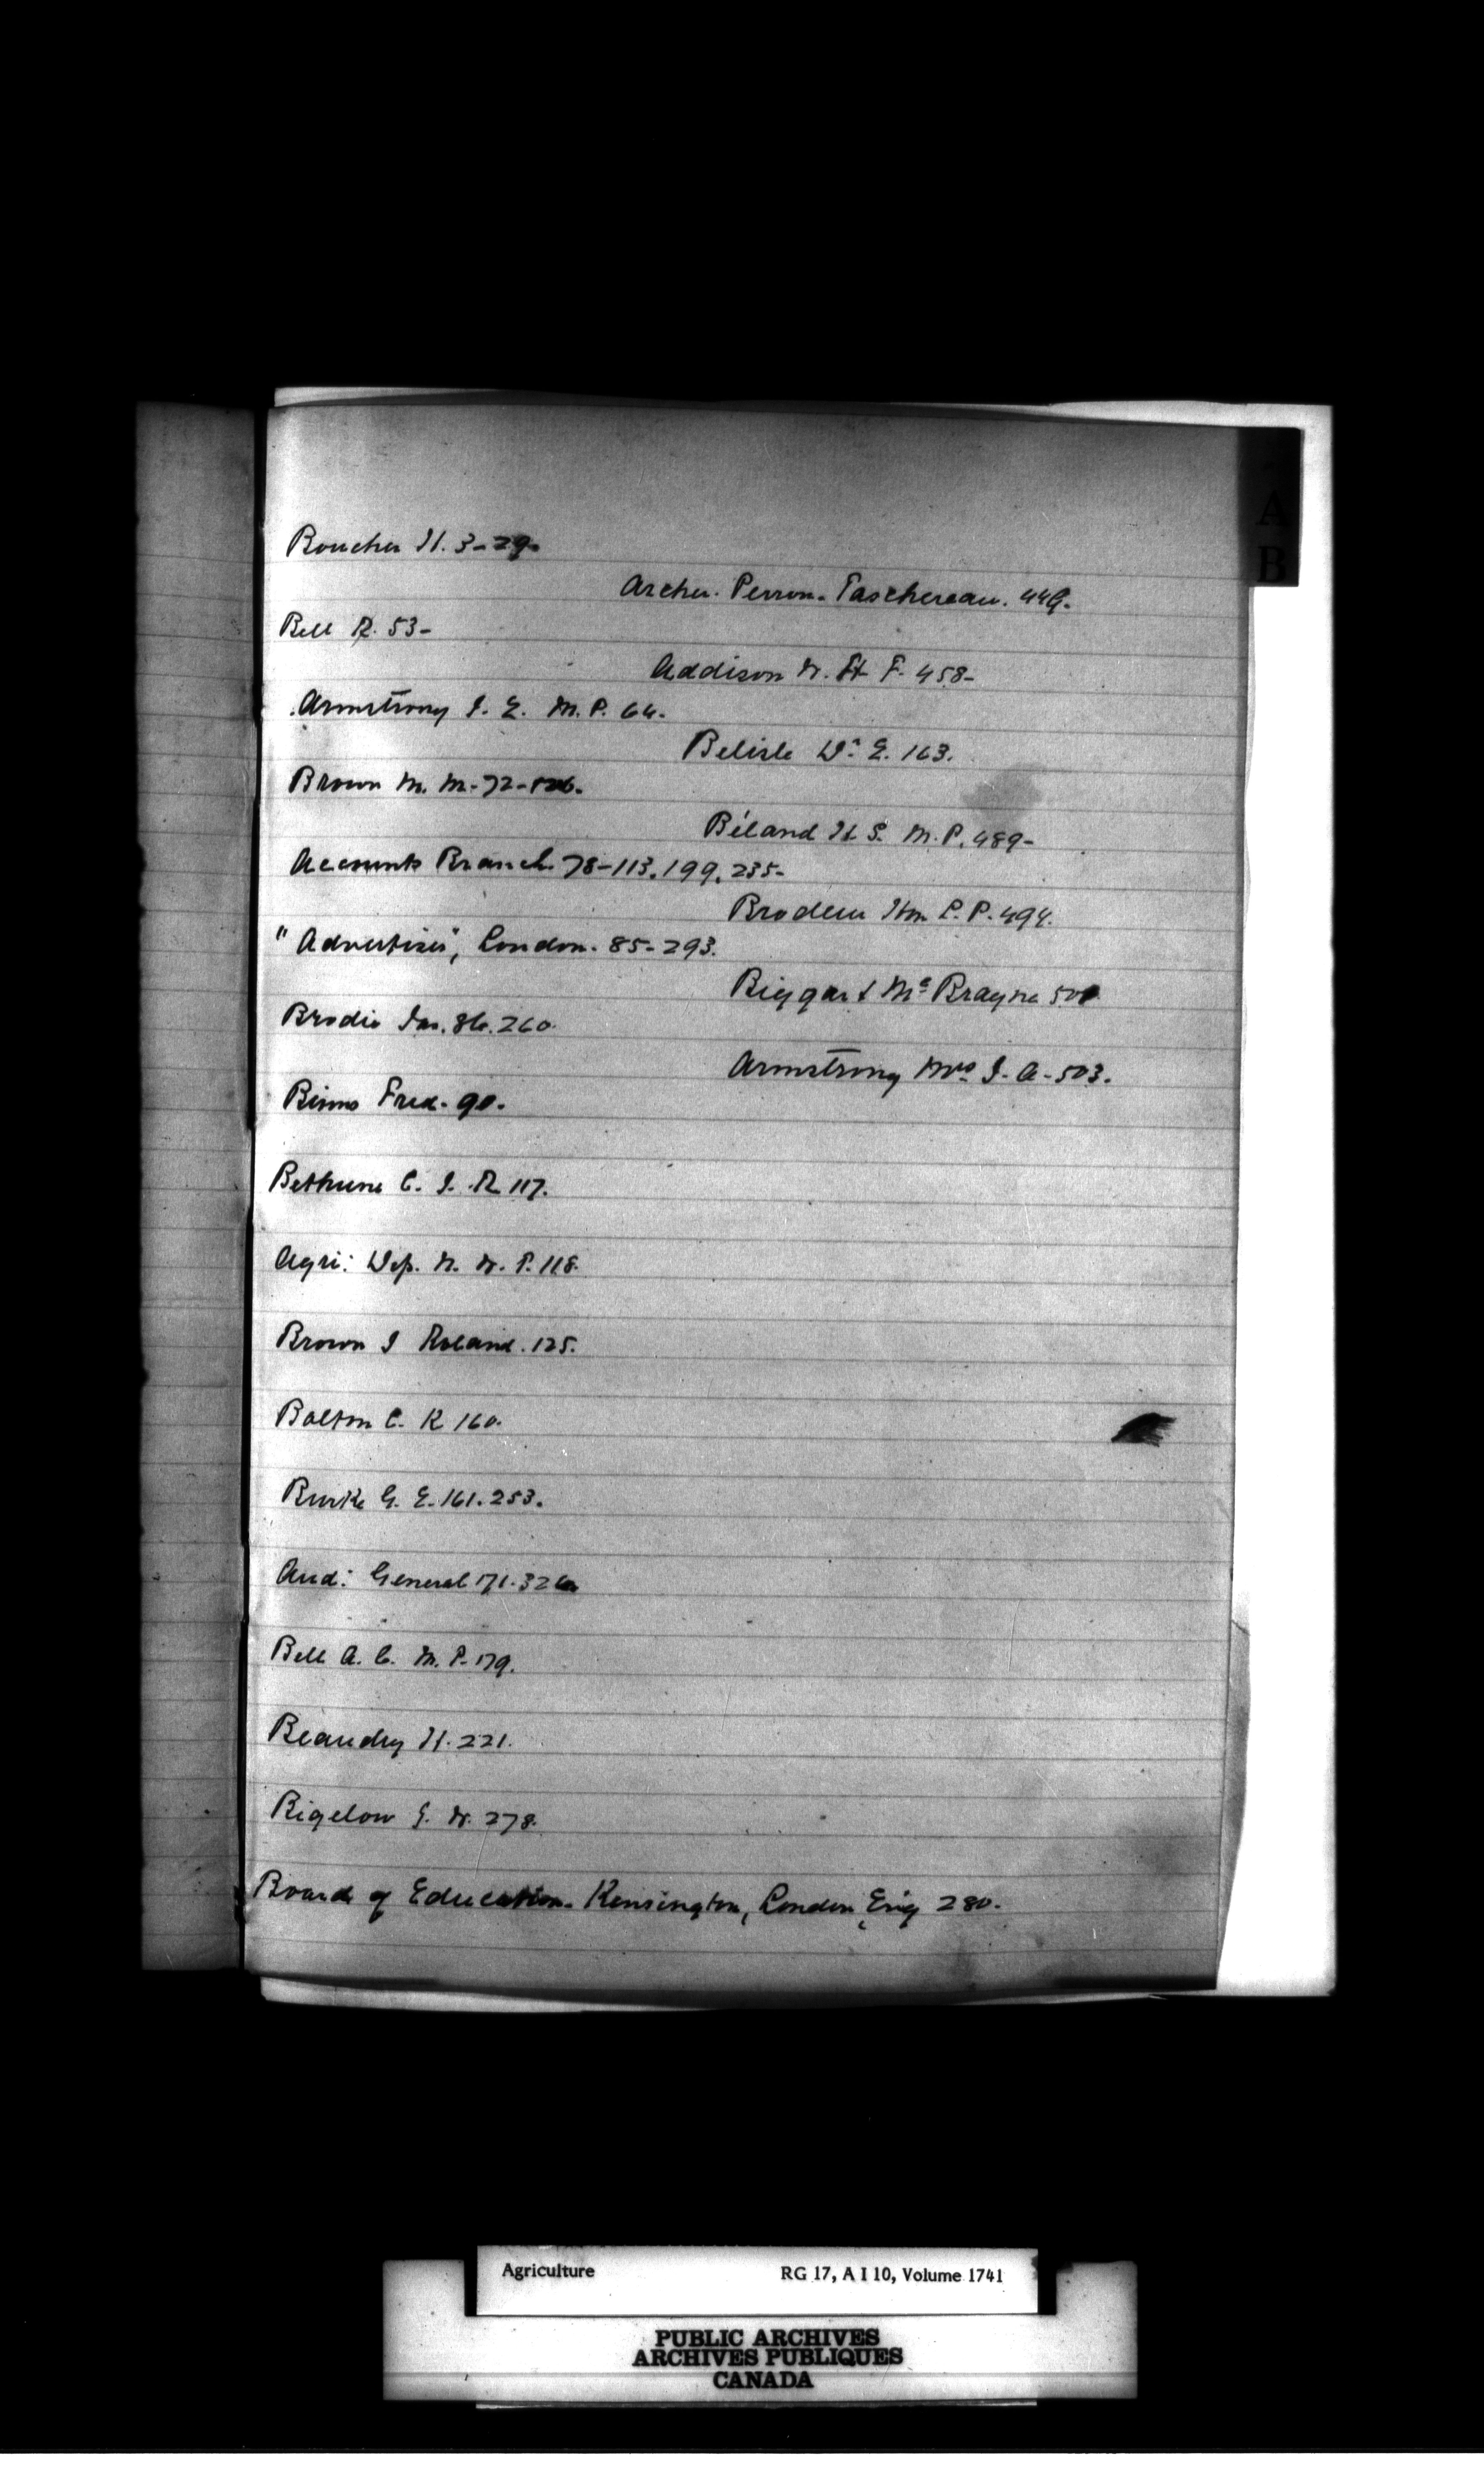 A
B
Boucher H. 3-29-
Archer. Perron. Taschereau. 449.
Bell R. 53-
Addison W. H. F. 458-
Armstrong J. E. M.P. 64.
Belisle Dr. E. 163.
Brown M. M. 72-526.
Béland H. S. M.P. 489-
Accounts Branch. 78-113.199.235-
Brodeur Hon L. P. 494.
"Advertiser", London. 85-293.
Biggar & McBrayne 500
Brodie Jas. 86.260.
Armstrong Mrs J. A-503.
Binns Fred. 90.
Bethune C. J. R. 117.
Agri: Dep. N. W. T. 118.
Brown J Roland. 125.
Bolton C. R 160.
Burke G. E. 161.253.
Aud: General 171.326
Bell A. C. M. P. 179.
Beaudry H. 221.
Bigelow G. W. 278.
Board of Education. Kensington, London, Eng 280.
Agriculture RG 17, A I 10, Volume 1741
PUBLIC ARCHIVES
ARCHIVES PUBLIQUES
CANADA